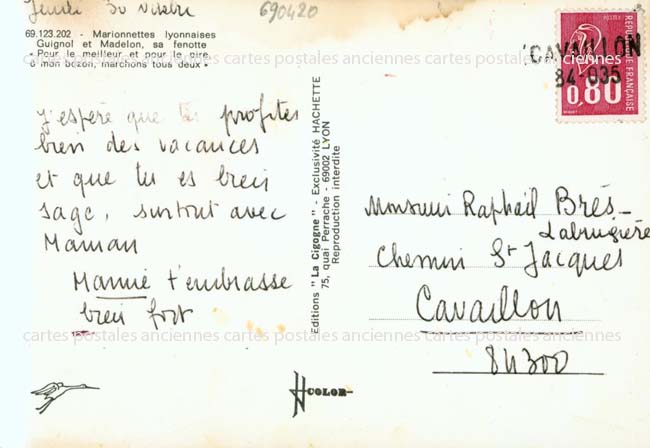 Jeudi 30
690420
69.123.202 - Marionnettes lyonnaises
Guignol et Madelon, sa fenotte
« Pour le meilleur et pour le pire,
ô mon bozon, marchons tous deux »
CAVAILLON
84-035
0,80
RÉPUBLIQUE FRANÇAISE
J'espère que tu profites
bien des vacances
et que tu es bien
sage, surtout avec
Maman
Mamie t'embrasse
bien fort
Editions "La Cigogne" - Exclusivité HACHETTE
75, quai Perrache - 69002 LYON
Reproduction interdite
Monsieur Raphaël Brés-
Labrugière
Chemin St Jacques
Cavaillon
84300
cartes postales anciennes cartes postales anciennes cartes postales anciennes
cartes postales anciennes cartes postales anciennes cartes postales anciennes
COLOR